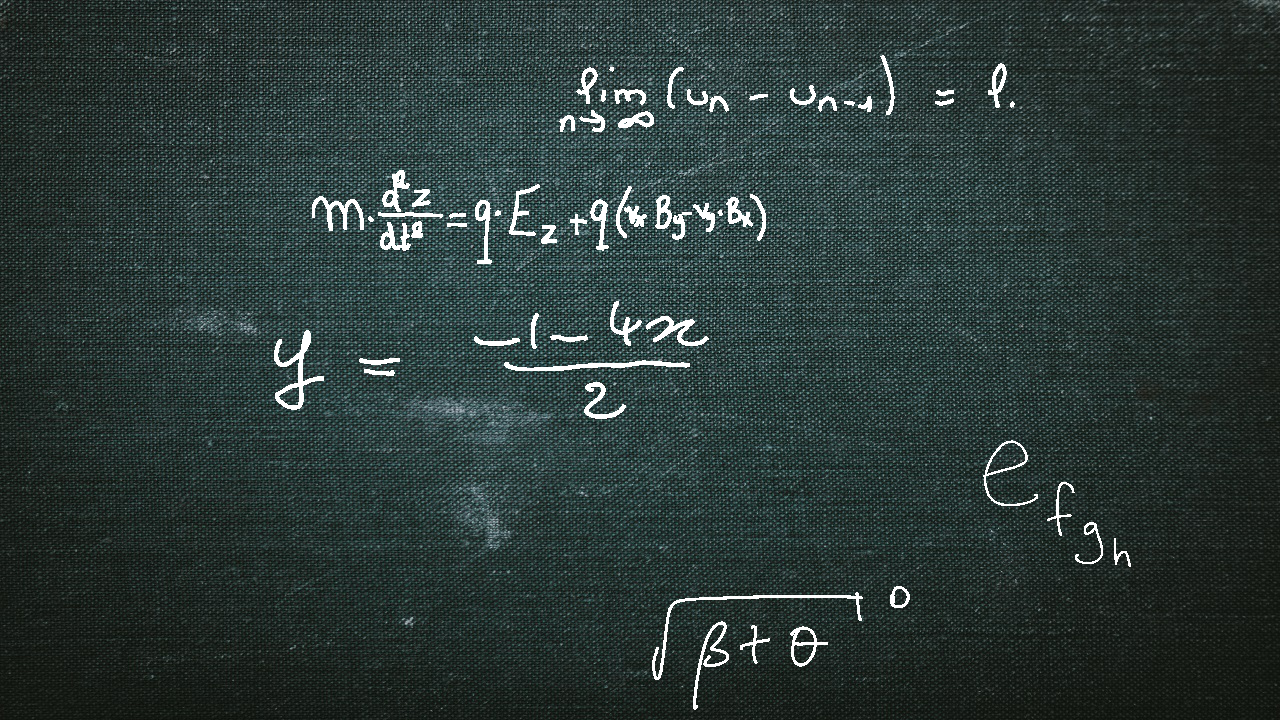 \lim_{n \to \infty} (u_n - u_{n-1}) = l.
m \cdot \frac{d^2 z}{dt^2} = q \cdot E_z + q (v_x \cdot B_y - v_y \cdot B_x)
y = \frac{-1 - 4x}{2}
e_{f_{g_h}}
\sqrt{\beta + \theta}^0